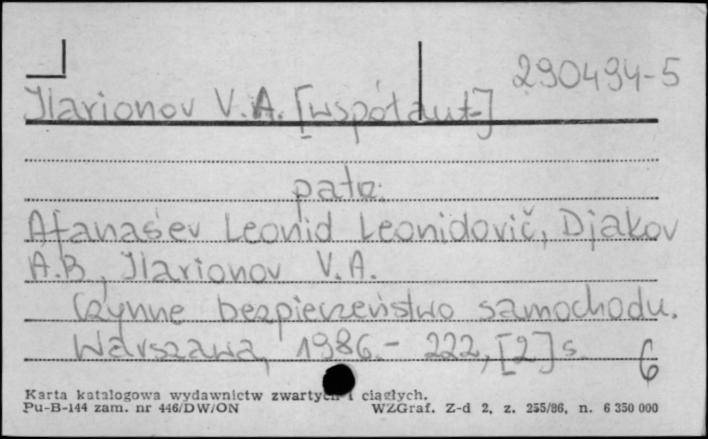 290494-5
Ilarionov V.A. [współaut.]
patrz:
Afanaśev Leonid Leonidovič, Djakov
A.B., Ilarionov V.A.
Czynne bezpieczeństwo samochodu.
Warszawa, 1986.- 222, [2] s. 6
Karta katalogowa wydawnictw zwartych i ciągłych.
Pu-B-144 zam. nr 446/DW/ON WZGraf. Z-d 2, z. 255/86, n. 6 350 000